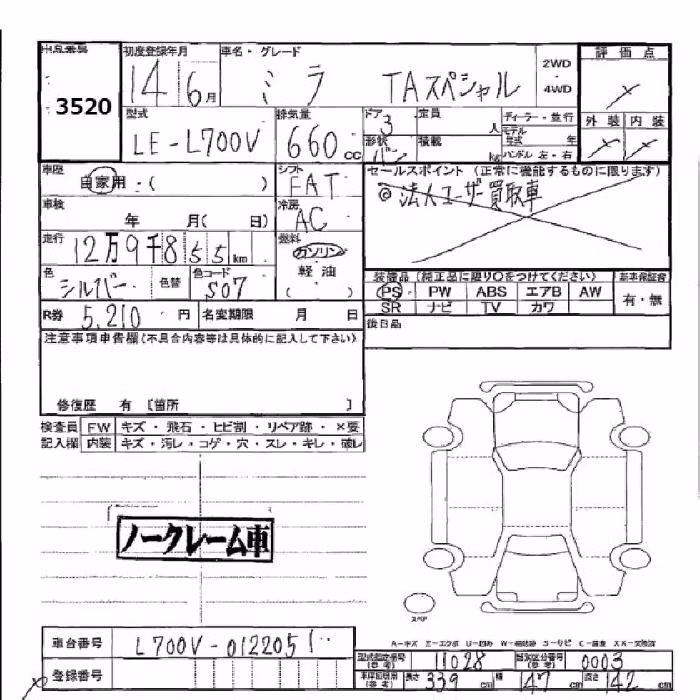 出品番号 初度登録年月 車名・グレード 2WD ・ 4WD 評価点
3520 14 6月 ミラ TAスペシャル
型式 排気量 ドア 3 定員 人 ディーラー・並行 外装 内装
LE-L700V 660cc 形状 バン 積載 kg モデル年式 年
ハンドル 左・右
車歴 シフト セールスポイント (正常に機能するものに限ります)
自家用・( ) FAT ◎法人ユーザー買取車
車検 年 月( 日) 冷房 AC
走行 12万9千855km 燃料 ガソリン
色 シルバー 色替 色コード S07 軽油 ( )
装備品(純正品に限り○をつけてください) 基準保証書
PS PW ABS エアB AW 有・無
SR ナビ TV カワ
R券 5,210円 名変期限 月 日 後日品
注意事項申告欄(不具合内容等は具体的に記入して下さい)
修復歴 有 〔箇所 〕
検査員 FW キズ・飛石・ヒビ割・リペア跡・×要
記入欄 内装 キズ・汚レ・コゲ・穴・スレ・キレ・破レ
ノークレーム車
スペア
車台番号 L700V-0122051
登録番号
型式指定番号(参考) 11028 類別区分番号(参考) 0003
長さ 339cm 幅 147cm 高さ 142cm